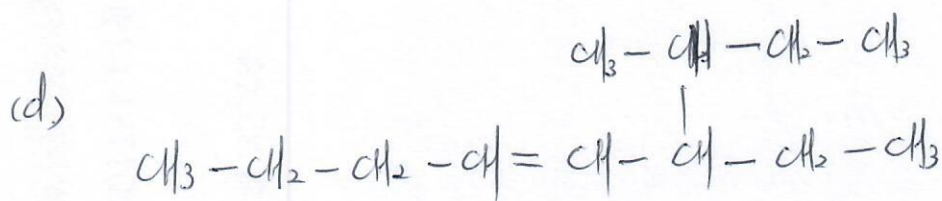 CH₃ – CH – CH₂ – CH₃
(d)
|
CH₃ – CH₂ – CH₂ – CH = CH – CH – CH₂ – CH₃